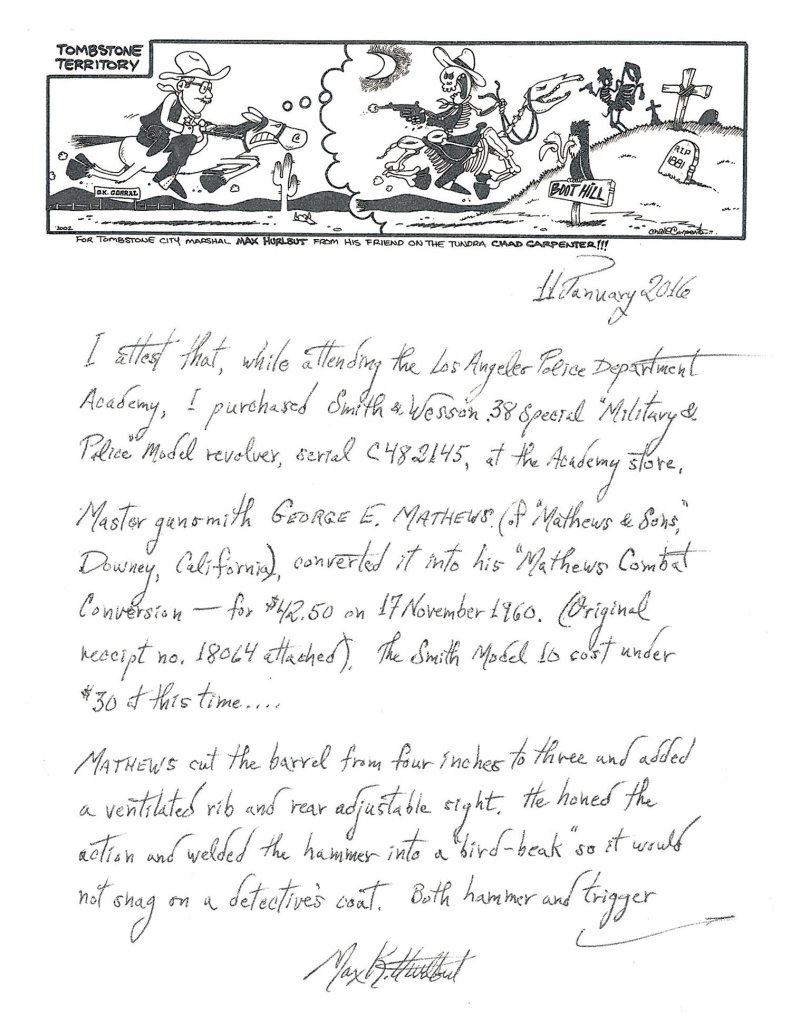 TOMBSTONE
TERRITORY
O.K. CORRAL
BOOT HILL
R.I.P.
1881
2002
Chad Carpenter
FOR TOMBSTONE CITY MARSHAL MAX HURLBUT FROM HIS FRIEND ON THE TUNDRA CHAD CARPENTER!!!
11 January 2016
I attest that, while attending the Los Angeles Police Department
Academy, I purchased Smith & Wesson .38 Special "Military &
Police" Model revolver, serial C482145, at the Academy store.
Master gunsmith GEORGE E. MATHEWS (of "Mathews & Sons,"
Downey, California), converted it into his "Mathews Combat
Conversion — for $42.50 on 17 November 1960. (Original
receipt no. 18064 attached). The Smith Model 10 cost under
$30 at this time....
MATHEWS cut the barrel from four inches to three and added
a ventilated rib and rear adjustable sight. He honed the
action and welded the hammer into a "bird-beak" so it would
not snag on a detective's coat. Both hammer and trigger
Max K. Hurlbut